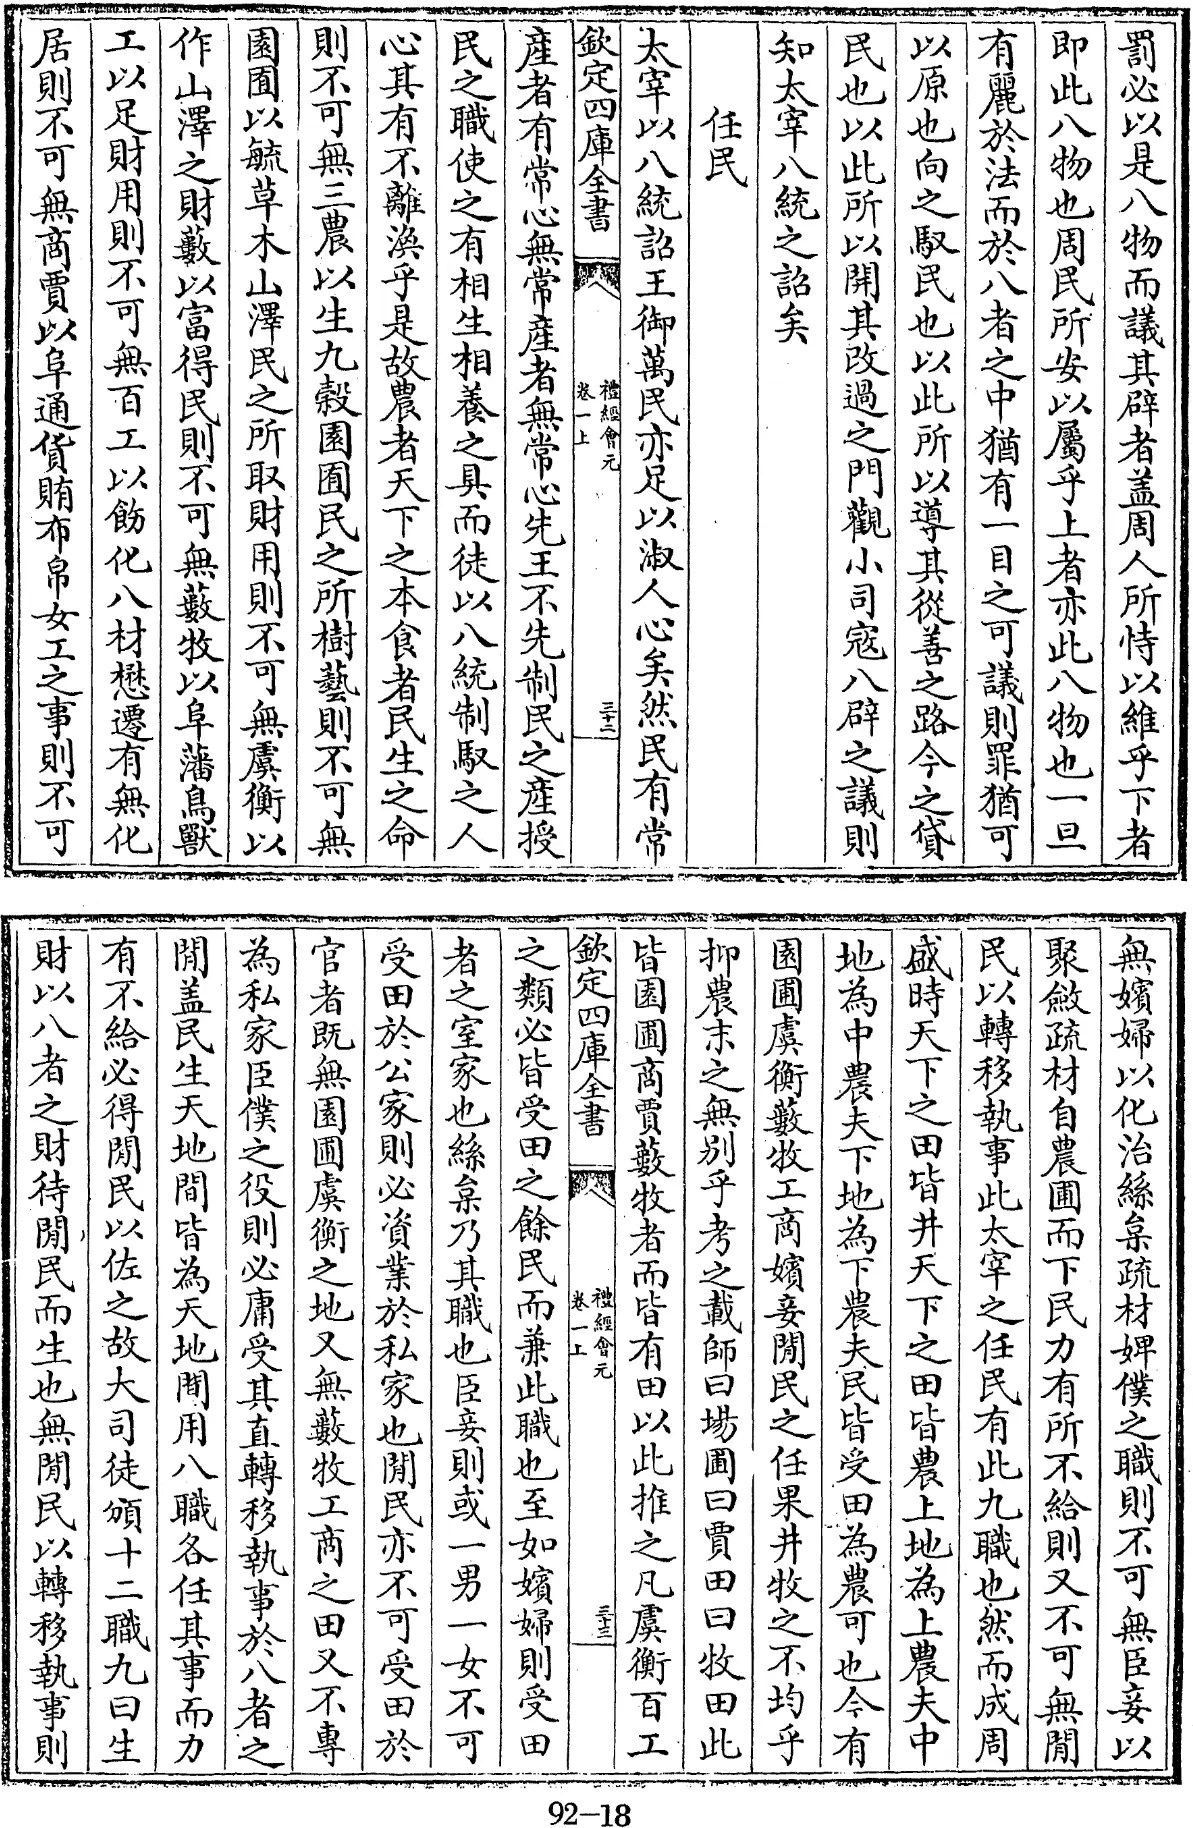 罰必以是八物而議其辟者盖周人所恃以維乎下者
即此八物也周民所安以屬乎上者亦此八物也一旦
有麗於法而於八者之中猶有一目之可議則罪猶可
以原也向之馭民也以此所以導其從善之路今之貸
民也以此所以開其改過之門觀小司寇八辟之議則
知太宰八統之詔矣
任民
太宰以八統詔王御萬民亦足以淑人心矣然民有常
欽定四庫全書
禮經會元
卷一上
三十二
產者有常心無常產者無常心先王不先制民之產授
民之職使之有相生相養之具而徒以八統制馭之人
心其有不離渙乎是故農者天下之本食者民生之命
則不可無三農以生九穀園囿民之所樹藝則不可無
園囿以毓草木山澤民之所取財用則不可無虞衡以
作山澤之財藪以富得民則不可無藪牧以阜蕃鳥獸
工以足財用則不可無百工以飭化八材懋遷有無化
居則不可無商賈以阜通貨賄布帛女工之事則不可
無嬪婦以化治絲枲疏材婢僕之職則不可無臣妾以
聚斂疏材自農圃而下民力有所不給則又不可無閒
民以轉移執事此太宰之任民有此九職也然而成周
盛時天下之田皆井天下之田皆農上地為上農夫中
地為中農夫下地為下農夫民皆受田為農可也今有
園圃虞衡藪牧工商嬪妾閒民之任果井牧之不均乎
抑農末之無別乎考之載師曰場圃曰賈田曰牧田此
皆園圃商賈藪牧者而皆有田以此推之凡虞衡百工
欽定四庫全書
禮經會元
卷一上
三十三
之類必皆受田之餘民而兼此職也至如嬪婦則受田
者之室家也絲枲乃其職也臣妾則或一男一女不可
受田於公家則必資業於私家也閒民亦不可受田於
官者既無園圃虞衡之地又無藪牧工商之田又不專
為私家臣僕之役則必庸受其直轉移執事於八者之
閒盖民生天地間皆為天地閒用八職各任其事而力
有不給必得閒民以佐之故大司徒頒十二職九曰生
財以八者之財待閒民而生也無閒民以轉移執事則
92-18